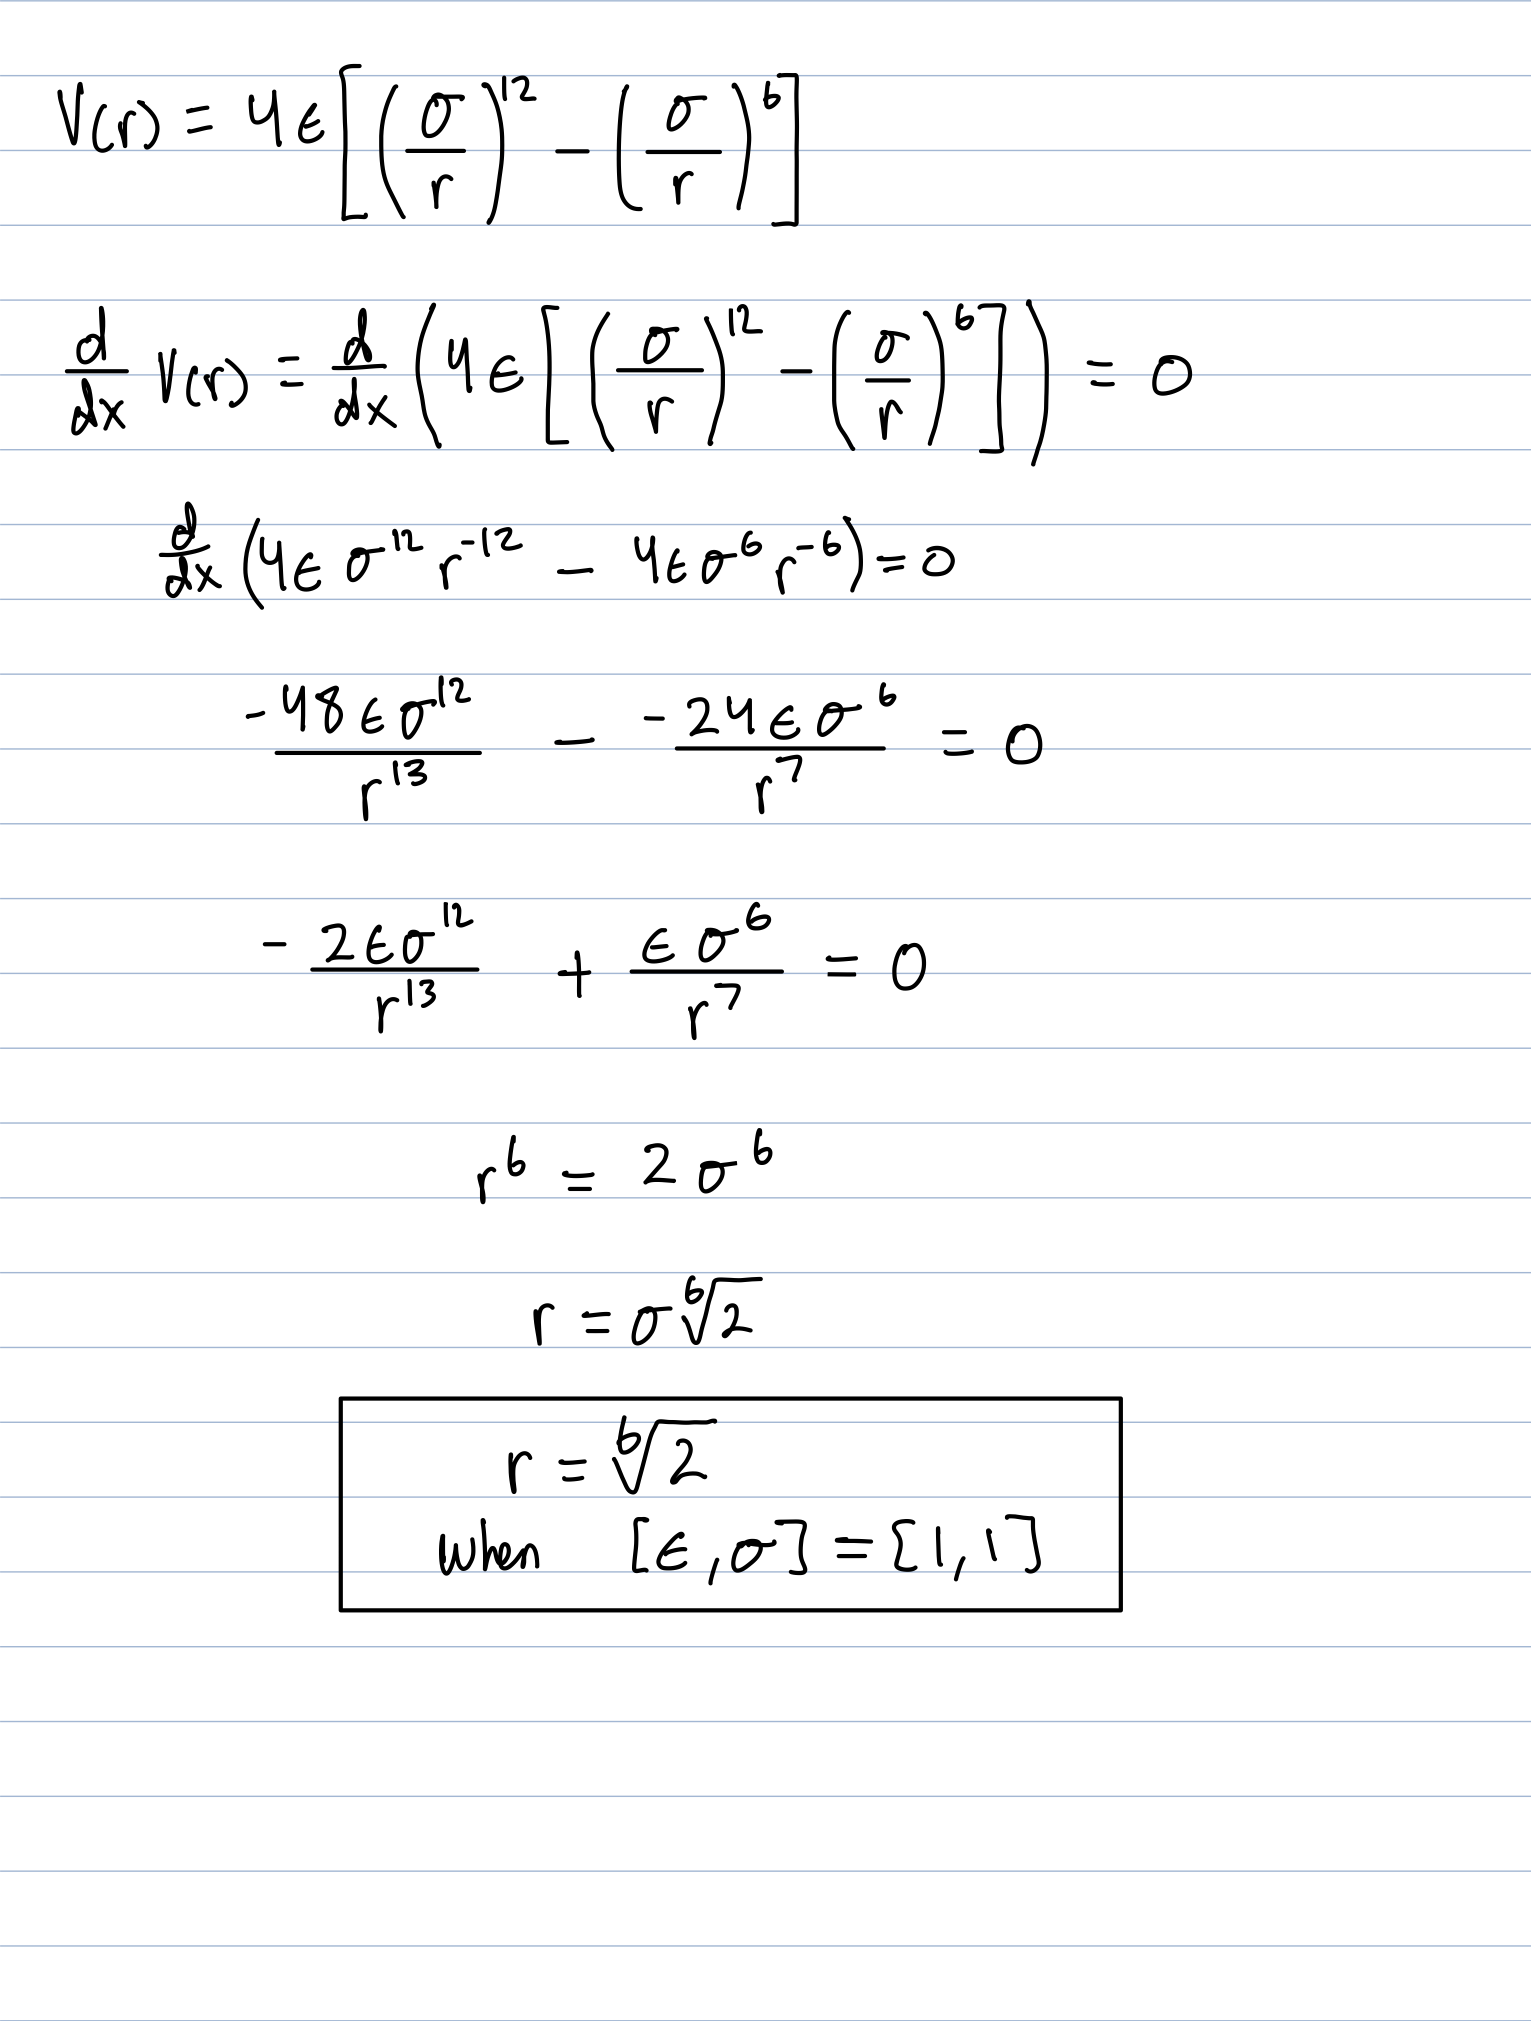 V(r) = 4ϵ[(σ/r)^12 − (σ/r)^6]
d/dx V(r) = d/dx (4ϵ[(σ/r)^12 − (σ/r)^6]) = 0
d/dx (4ϵσ^12 r^-12 − 4ϵσ^6 r^-6) = 0
-48ϵσ^12/r^13 − -24ϵσ^6/r^7 = 0
- 2ϵσ^12/r^13 + ϵσ^6/r^7 = 0
r^6 = 2σ^6
r = σ ⁶√2
r = ⁶√2
when [ϵ,σ] = [1,1]